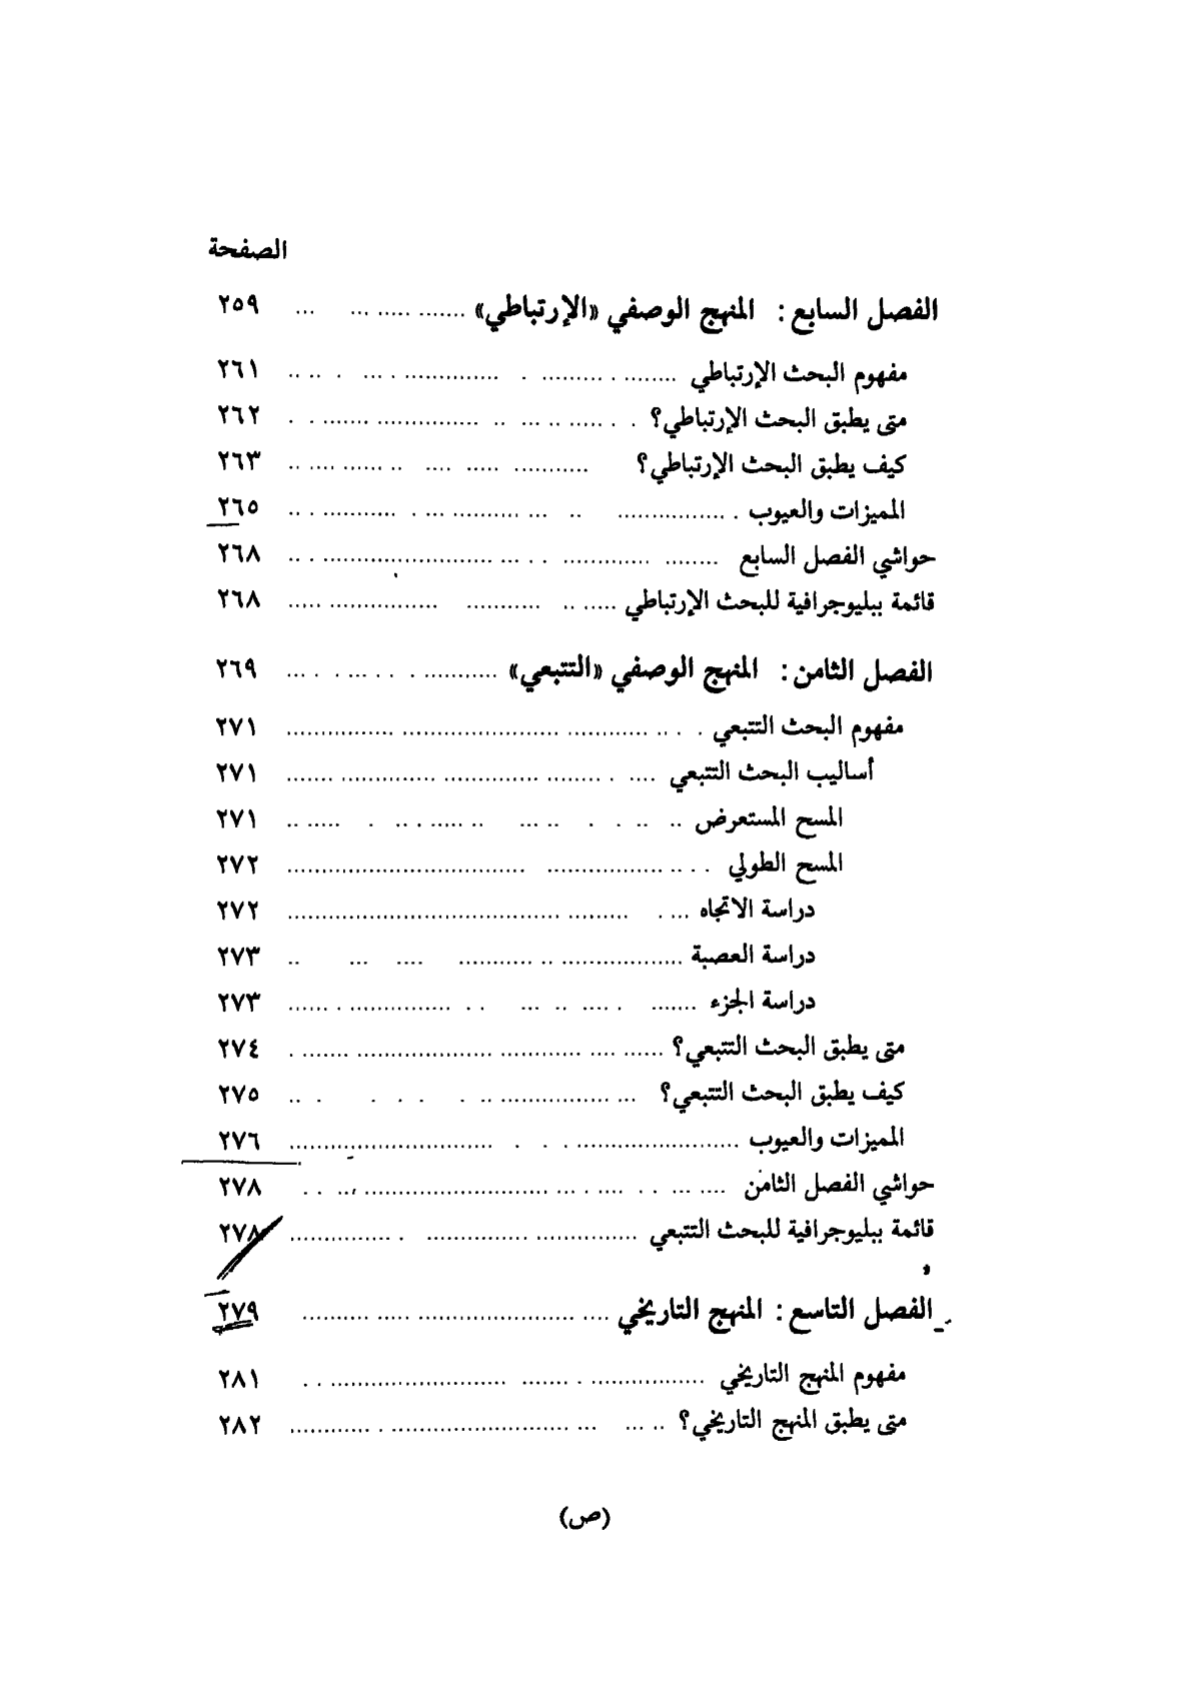 الصفحة
الفصل السابع : المنهج الوصفي «الإرتباطي» ٢٥٩
مفهوم البحث الإرتباطي ٢٦١
متى يطبق البحث الإرتباطي؟ ٢٦٢
كيف يطبق البحث الإرتباطي؟ ٢٦٣
المميزات والعيوب ٢٦٥
حواشي الفصل السابع ٢٦٨
قائمة ببليوجرافية للبحث الإرتباطي ٢٦٨
الفصل الثامن : المنهج الوصفي «التتبعي» ٢٦٩
مفهوم البحث التتبعي ٢٧١
أساليب البحث التتبعي ٢٧١
المسح المستعرض ٢٧١
المسح الطولي ٢٧٢
دراسة الاتجاه ٢٧٢
دراسة العصبة ٢٧٣
دراسة الجزء ٢٧٣
متى يطبق البحث التتبعي؟ ٢٧٤
كيف يطبق البحث التتبعي؟ ٢٧٥
المميزات والعيوب ٢٧٦
حواشي الفصل الثامن ٢٧٨
قائمة ببليوجرافية للبحث التتبعي ٢٧٨
الفصل التاسع : المنهج التاريخي ٢٧٩
مفهوم المنهج التاريخي ٢٨١
متى يطبق المنهج التاريخي؟ ٢٨٢
(ص)